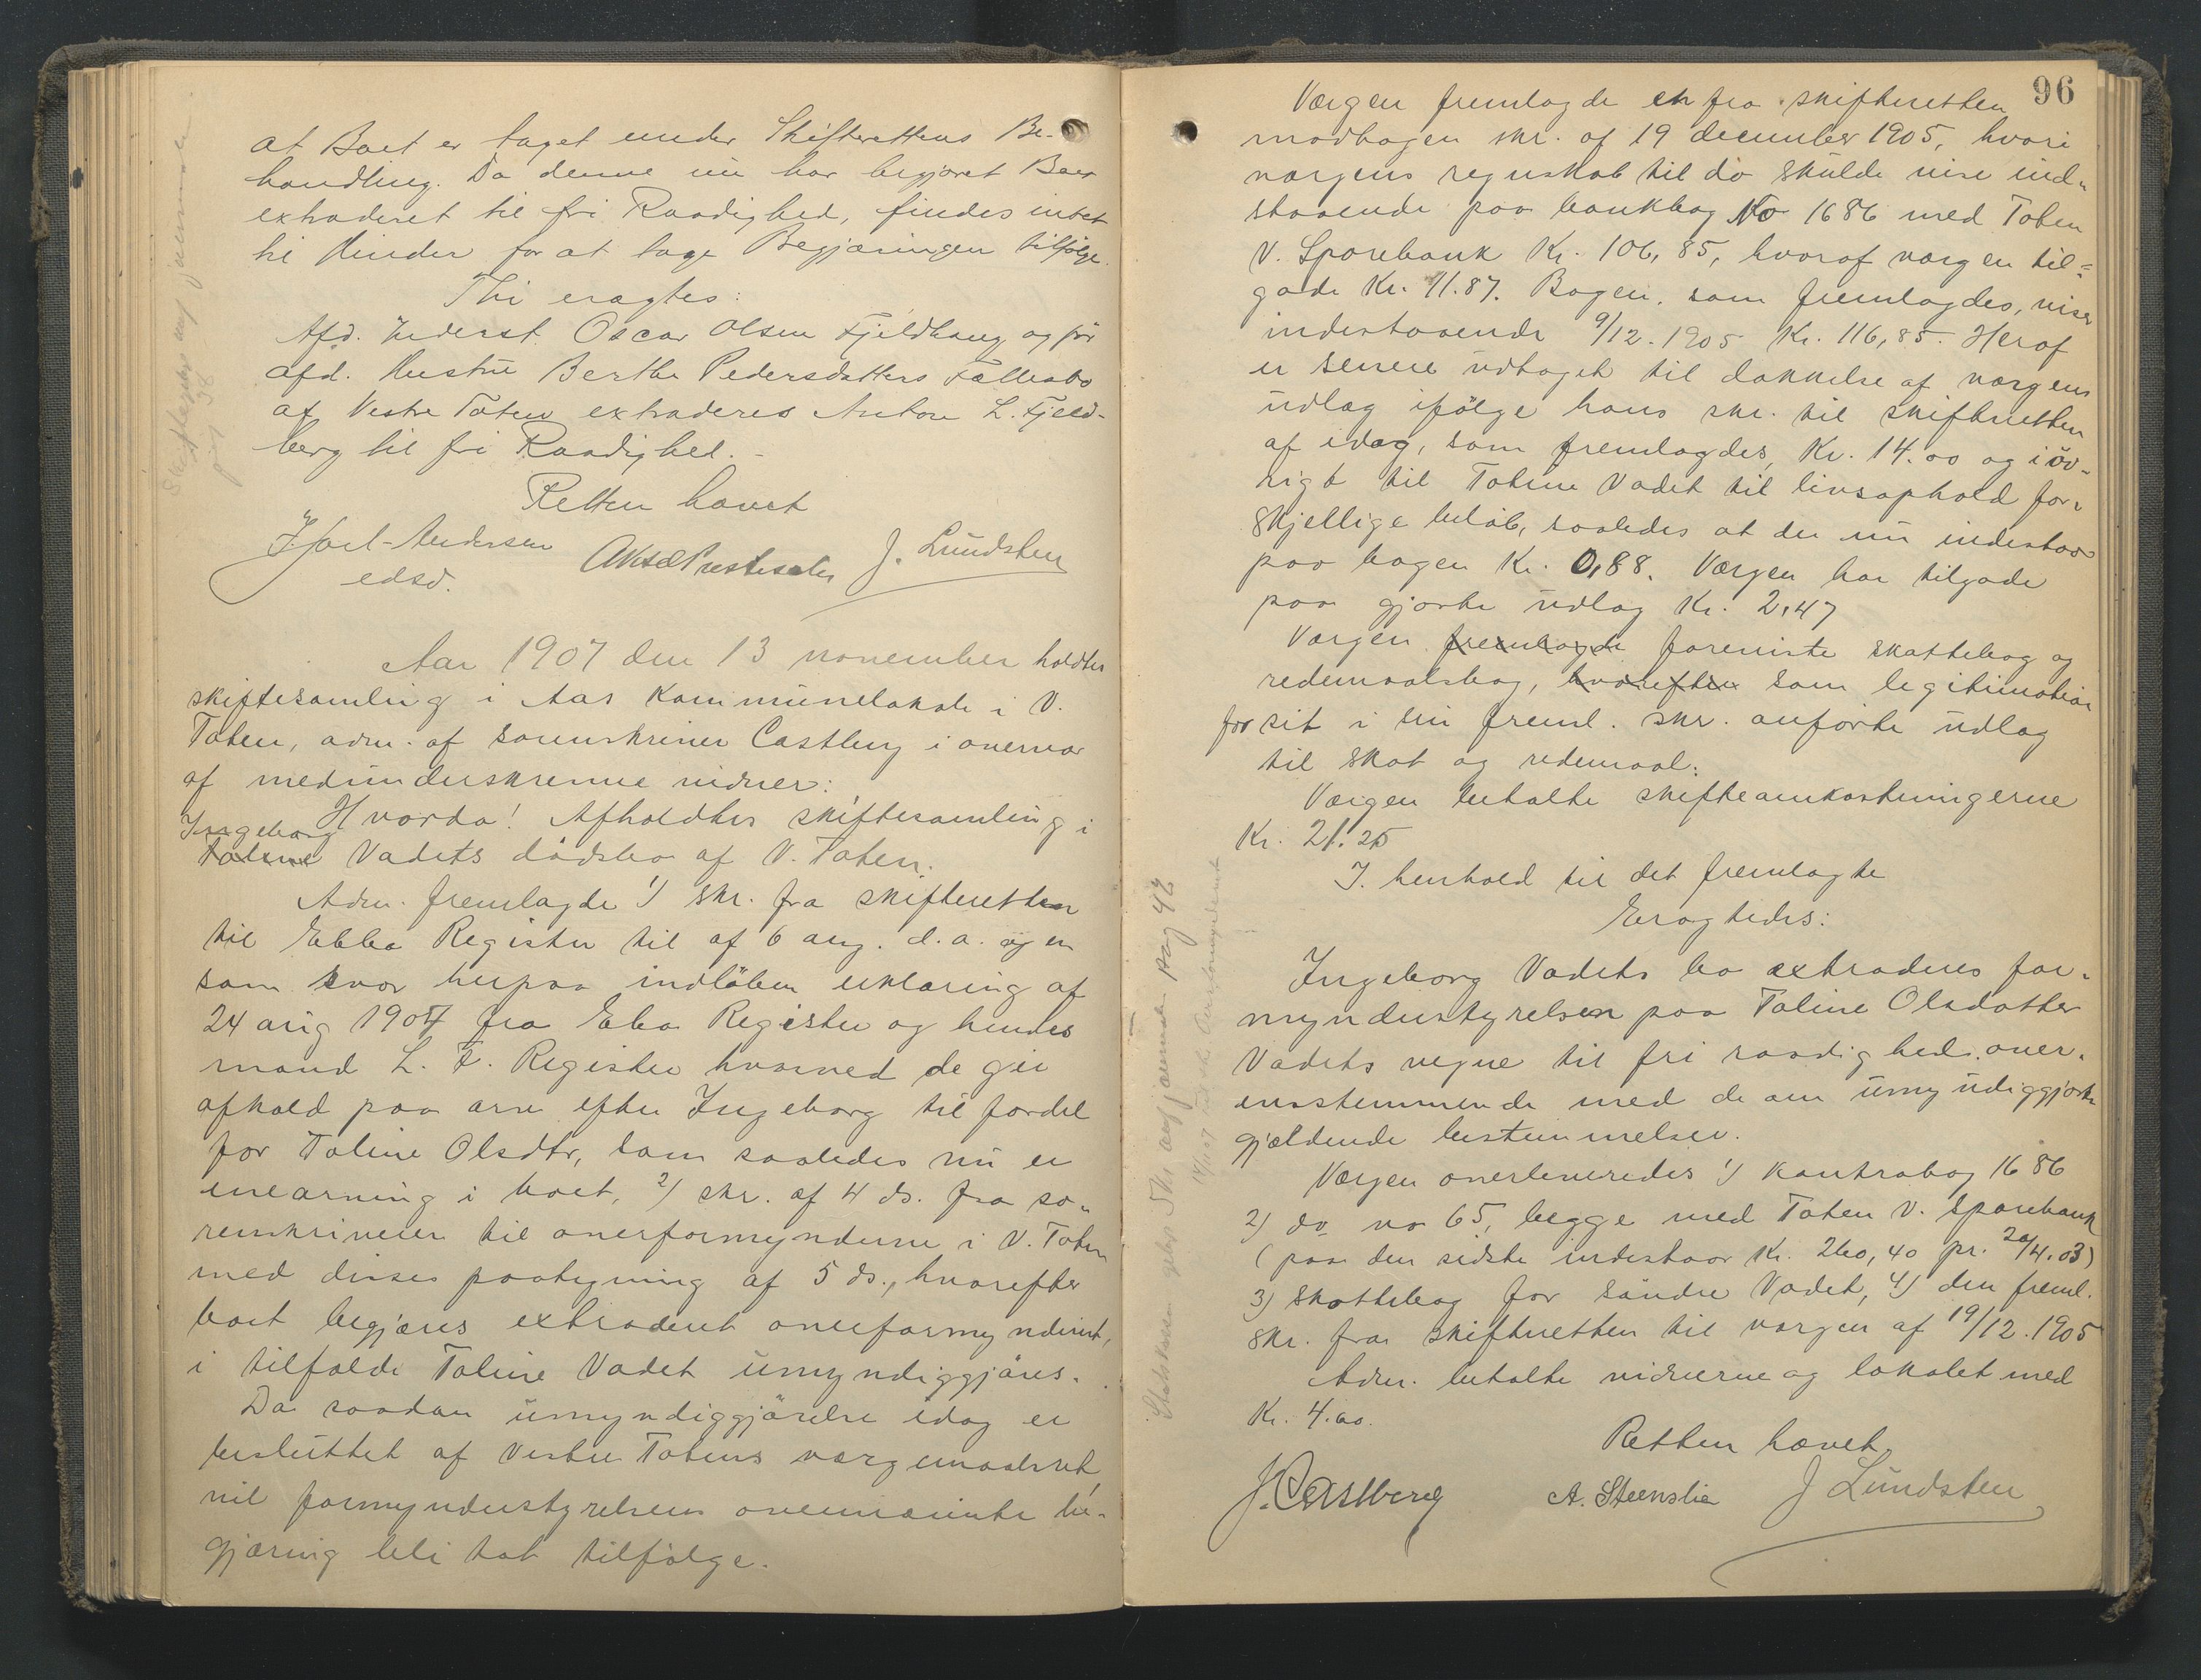 at Boet er taget under Skifterettens Be-
handling. Da denne nu har begjæret Boet
extraderet til fri Raadighed, findes intet
til Hinder for at tage Begjæringen tilfølge.
Thi eragtes:
Afd. Inderst Oscar Olsen Fjeldhaug og før
afd. Hustru Berthe Pedersdatters Fællesbo
af Vestre Toten extraderes Anton L. Fjeld-
berg til fri Raadighed.-
Retten hævet
Hjort-Andersen
edsv.
J. Lundsten
Aar 1907 den 13 november holdtes
skiftesamling i Aas Kommunelokale i V.
Toten, adm. af sorenskriver Castberg i overvær
af medunderskrevne vidner:
Hvorda! Afholdtes skiftesamling i
Ingeborg
Toline Vadets dødsbo af V. Toten.
Adm. fremlagde 1) skr. fra skifteretten
til Ebba Register til af 6 aug. d.a. og en
som svar herpaa indløben erklæring af
24 aug 1907 fra Ebba Register og hendes
mand L. F. Register hvorved de gir
afkald paa arv efter Ingeborg til fordel
for Toline Olsdtr, som saaledes nu er
enearving i boet, 2) skr. af 4 ds. fra so-
renskriveren til overformynderne i V. Toten
med disses paategning af 5 ds., hvorefter
boet begjæres extraderet overformynderiet,
i tilfælde Toline Vadet umyndiggjøres.
Da saadan umyndiggjørelse idag er
besluttet af Vestre Totens værgemaalsret
vil formynderstyrelsens ovennævnte be-
gjæring bli tat tilfølge.
96
Værgen fremlagde en fra skifteretten
modtagen skr. af 19 december 1905, hvori
værgens regnskab til da skulde vise ind-
staaende paa bankbog No 1686 med Toten
V. Sparebank Kr. 106,85, hvoraf værgen til-
gode Kr. 11.87. Bogen, som fremlagdes, viser
indestaaende 9/12. 1905 Kr. 116,85. Heraf
er senere udtaget til dækkelse af værgens
udlæg ifølge hans skr. til skifteretten
af idag, som fremlagdes, Kr. 14.00 og iøv-
rigt til Toline Vadet til livsophold for-
skjellige beløb, saaledes at der nu indestaar
paa bogen Kr. 0,88. Værgen har tilgode
paa gjorte udlæg Kr. 2,47
Værgen fremlagde foreviste skattebog og
redemaalsbog, hvorefter som legitimation
for sit i sin freml. skr. anførte udlæg
til skat og redemaal.
Værgen betalte skifteomkostningerne
Kr. 21.25
I henhold til det fremlagte
Eragtedes:
Ingeborg Vadets bo extraderes for-
mynderstyrelsen paa Toline Olsdatter
Vadets vegne til fri raadighed over-
ensstemmende med de om umyndiggjorte
gjældende bestemmelser.
Værgen overleveredes 1) Kontrabog 1686
2) do no 65, begge med Toten V. Sparebank
(paa den sidste indestaar Kr. 260,40 pr. 20/4.03)
3) Skattebog for søndre Vadet, 4) den freml.
skr. fra skifteretten til værgen af 19/12. 1905
Adm. betalte vidnerne og lokalet med
Kr. 4.00.
Retten hævet.
J. Castberg
A. Steenslie
J Lundsten